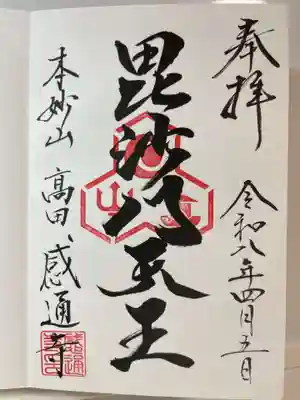 奉拝
令和八年四月五日
毘沙門天王
本妙山
高田、感通寺